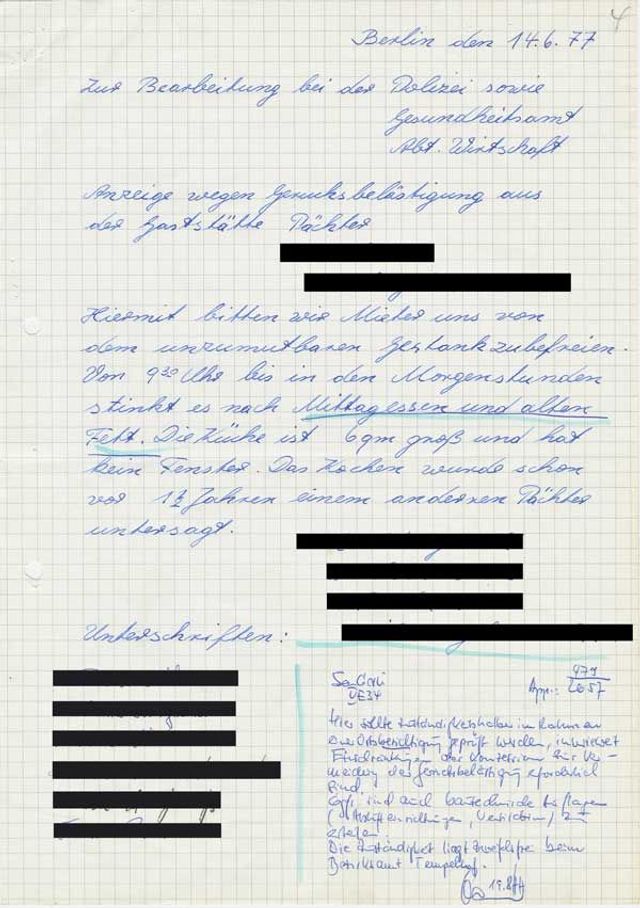 4
Berlin den 14.6.77
Zur Bearbeitung bei der Polizei sowie
Gesundheitsamt
Abt. Wirtschaft
Anzeige wegen Geruksbelästigung aus
der Gaststätte Pächter
Hiermit bitten wir Mieter uns von
dem unzumutbaren Gestank zubefreien.
Von 9³⁰ Uhr bis in den Morgenstunden
stinkt es nach Mittagessen und alten
Fett. Die Küche ist 6 qm groß und hat
kein Fenster. Das Kochen wurde schon
vor 1½ Jahren einem anderen Pächter
untersagt.
Unterschriften:
App.: 2657
Hier sollte zuständigkeitshalber im Rahmen
einer Ortsbesichtigung geprüft werden, inwieweit
Einschränkungen der Konzession zur Ver-
meidung der Geruchsbelästigung erforderlich
sind.
Ggf. sind auch bautechnische Auflagen
zu
erteilen.
Die Zuständigkeit liegt zweifelsfrei beim
Bezirksamt Tempelhof.